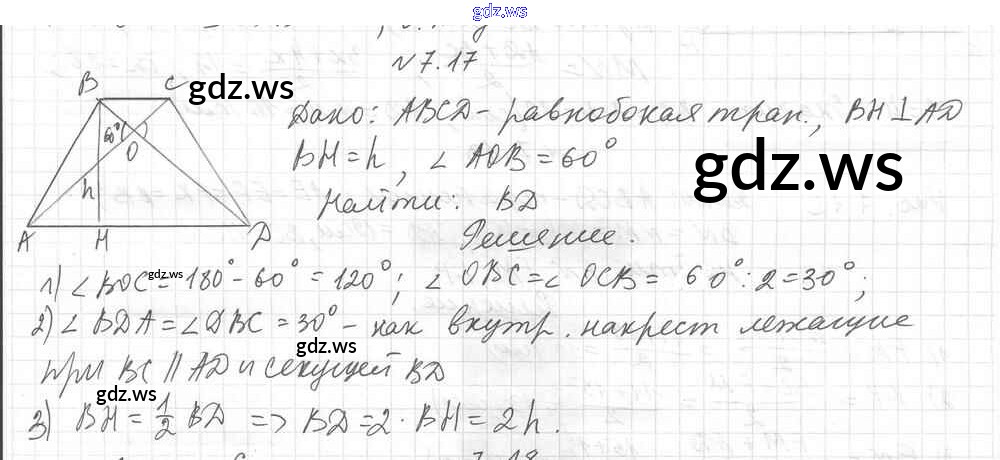 gdz.ws
№7.17
B C gdz.ws
60°
O
h
A H D
Дано: ABCD - равнобокая трап., BH⊥AD
BH = h, ∠AOB = 60°
gdz.ws
Найти: BD
Решение.
1) ∠BOC = 180° - 60° = 120°; ∠OBC = ∠OCB = 60° : 2 = 30°;
gdz.ws
2) ∠BDA = ∠DBC = 30° - как внутр. накрест лежащие
gdz.ws
при BC || AD и секущей BD
gdz.ws
3) BH = 1/2 BD => BD = 2 · BH = 2h.